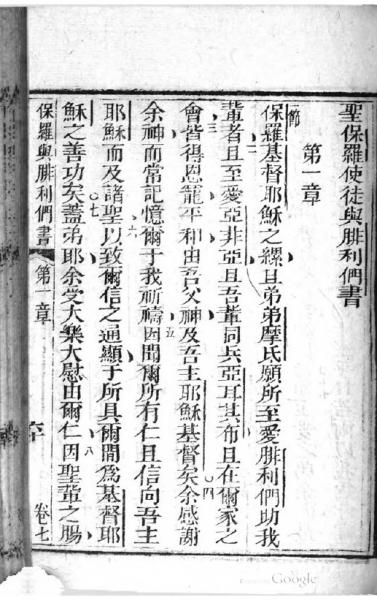 聖保羅使徒與腓利們書
第一章
一節 保羅基督耶穌之縲且弟弟摩氏願所至愛腓利們助我
輩者且至愛亞非亞且吾輩同兵亞耳其布且在爾家之
會皆得恩寵平和由吾父神及吾主耶穌基督矣余感謝
余神而常記憶爾于我祈禱因聞爾所有仁且信向吾主
耶穌而及諸聖以致爾信之通顯于所具爾間為基督耶
穌之善功矣蓋弟耶余受大樂大慰由爾仁因聖輩之腸
保羅與腓利們書 第一章 卷七
Google